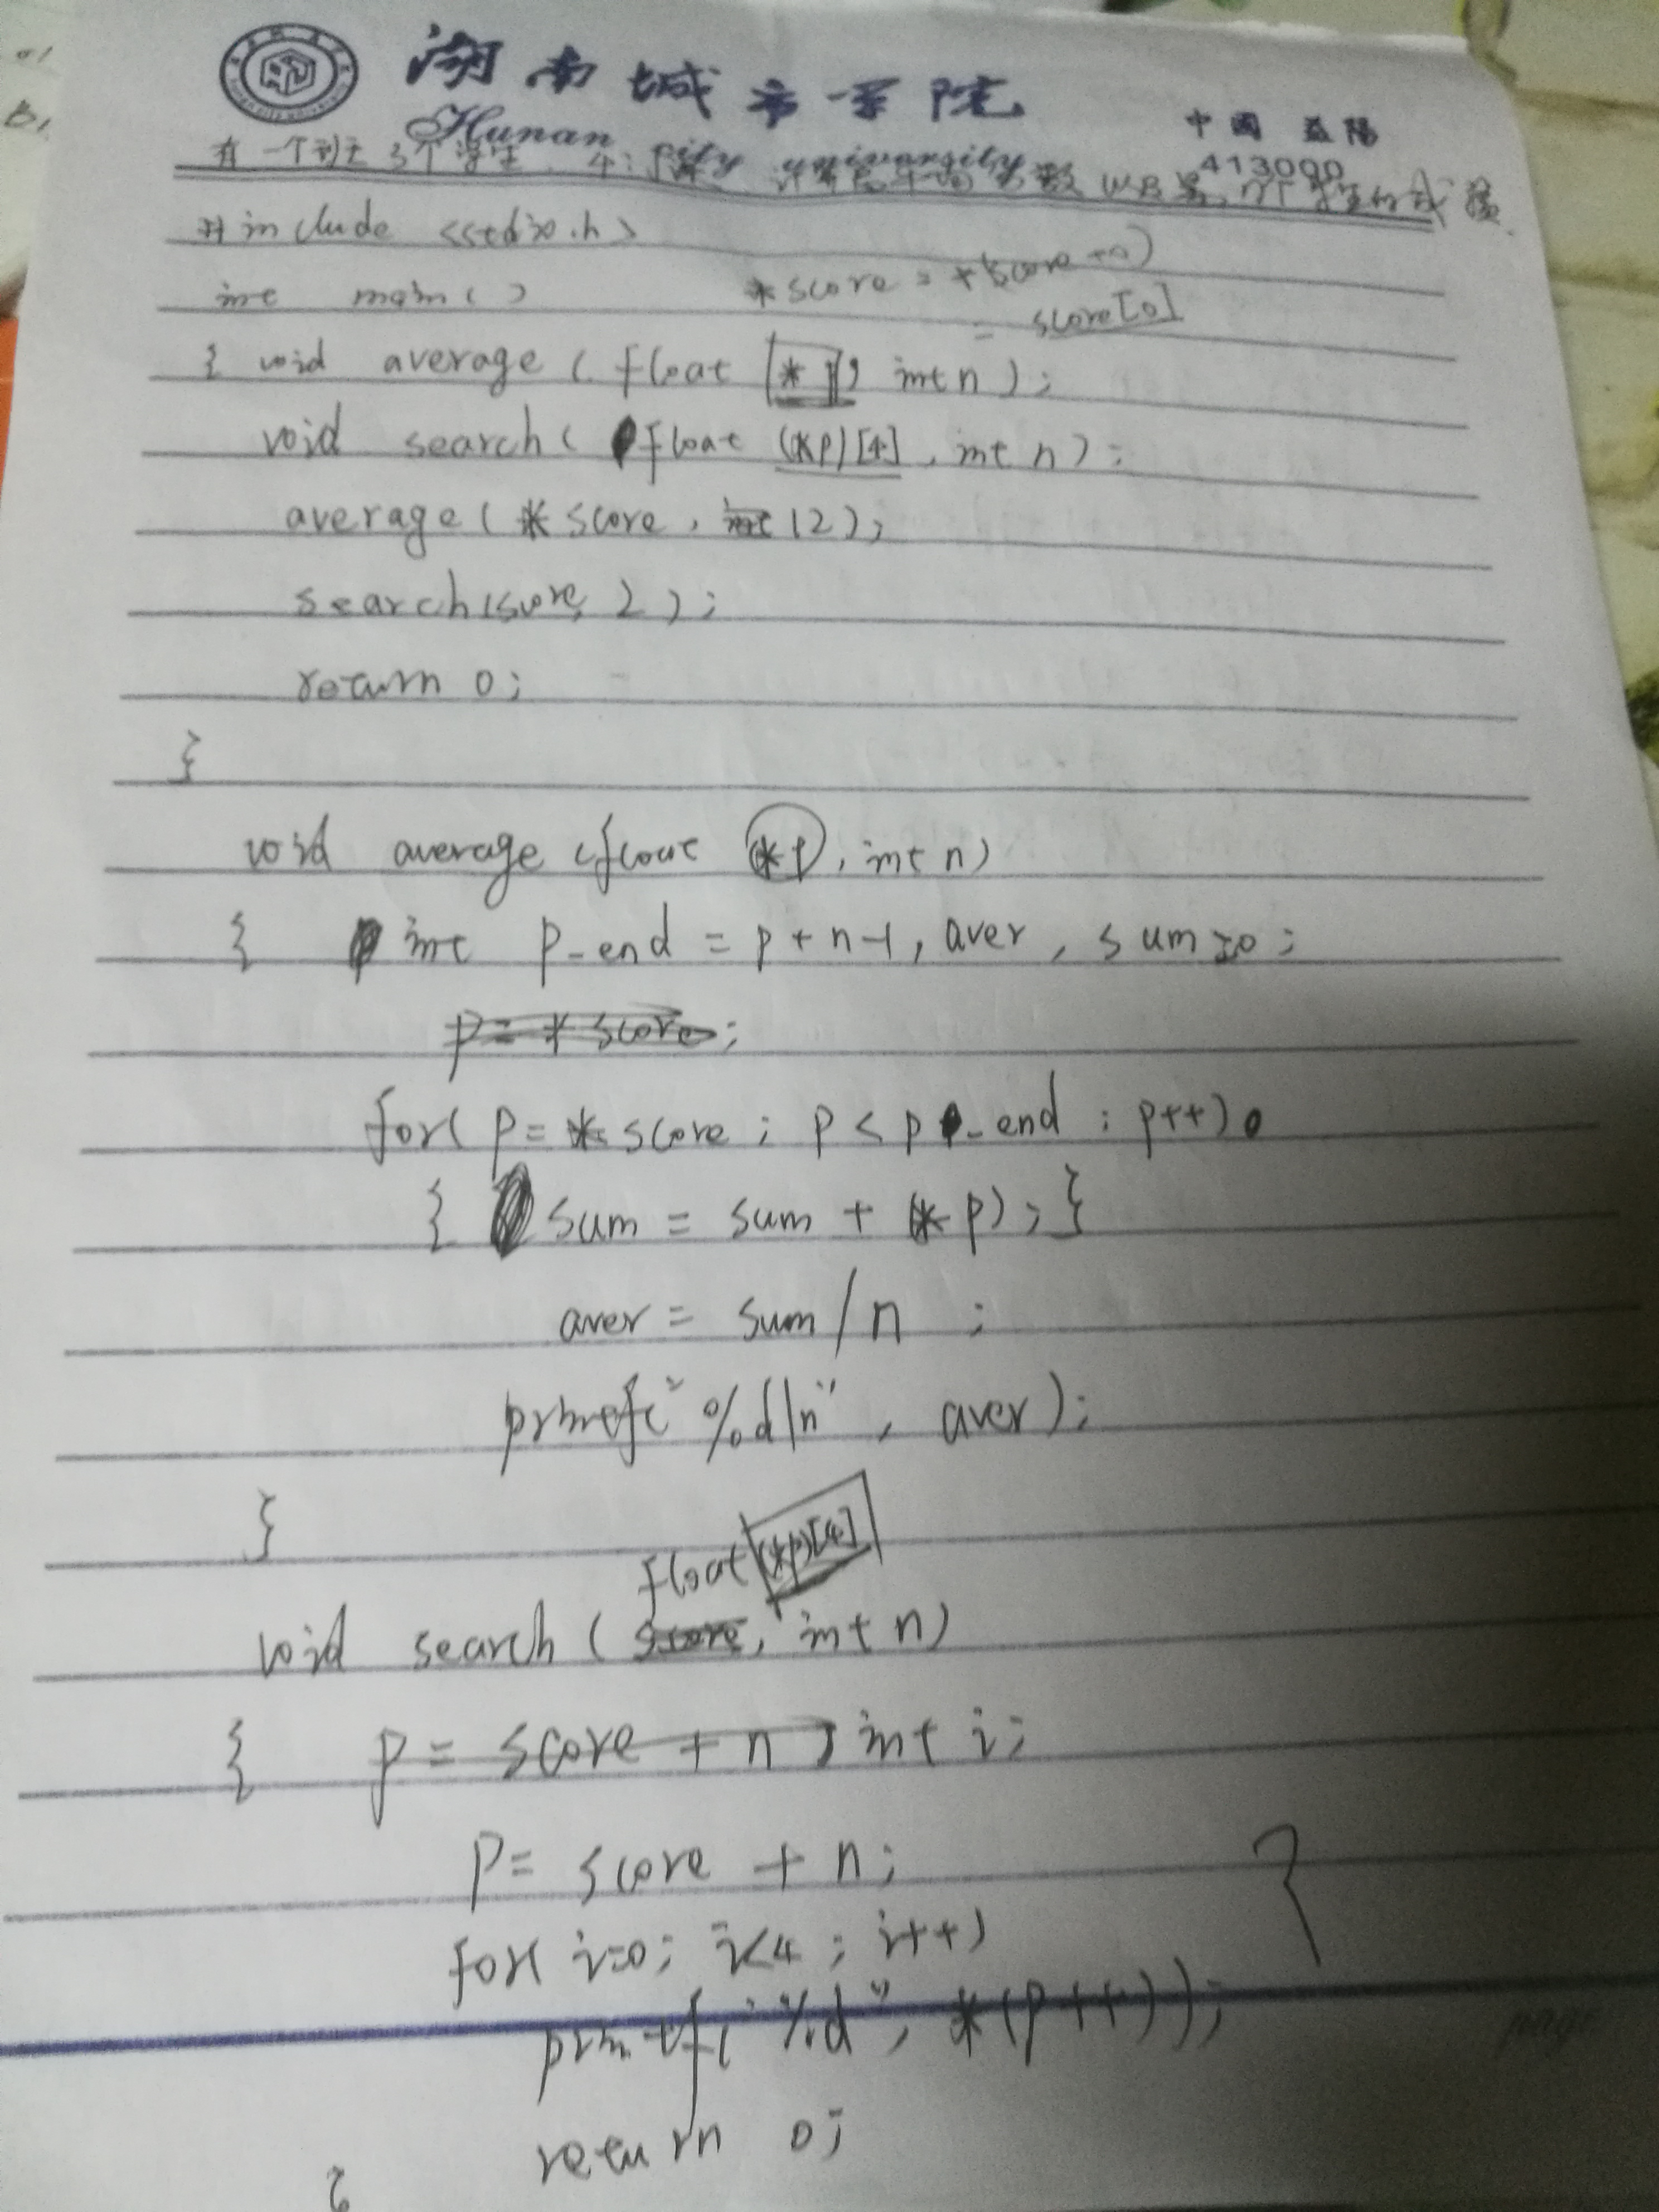 湖南城市学院
Hunan City University
中国 益陽
413000
有一个班 3个学生, 4门课 计算总平均分数 以及第n个学生的成绩.
#include <stdio.h>
int main()
*score = *(score+0)
= score[0]
{ void average ( float *p, int n );
void search ( float (*p)[4], int n );
average ( *score, 12 );
search(score, 2 );
return 0;
}
void average (float *p, int n)
{ int p_end = p + n-1, aver, sum=0;
p = *score;
for( p = *score ; p < p_end ; p++)
{ sum = sum + (*p); }
aver = sum / n ;
printf("%d\n", aver);
}
float (*p)[4]
void search ( score, int n)
{ p = score + n, int i;
p = score + n;
for( i=0; i<4 ; i++)
printf("%d", *(p++));
return 0;
}